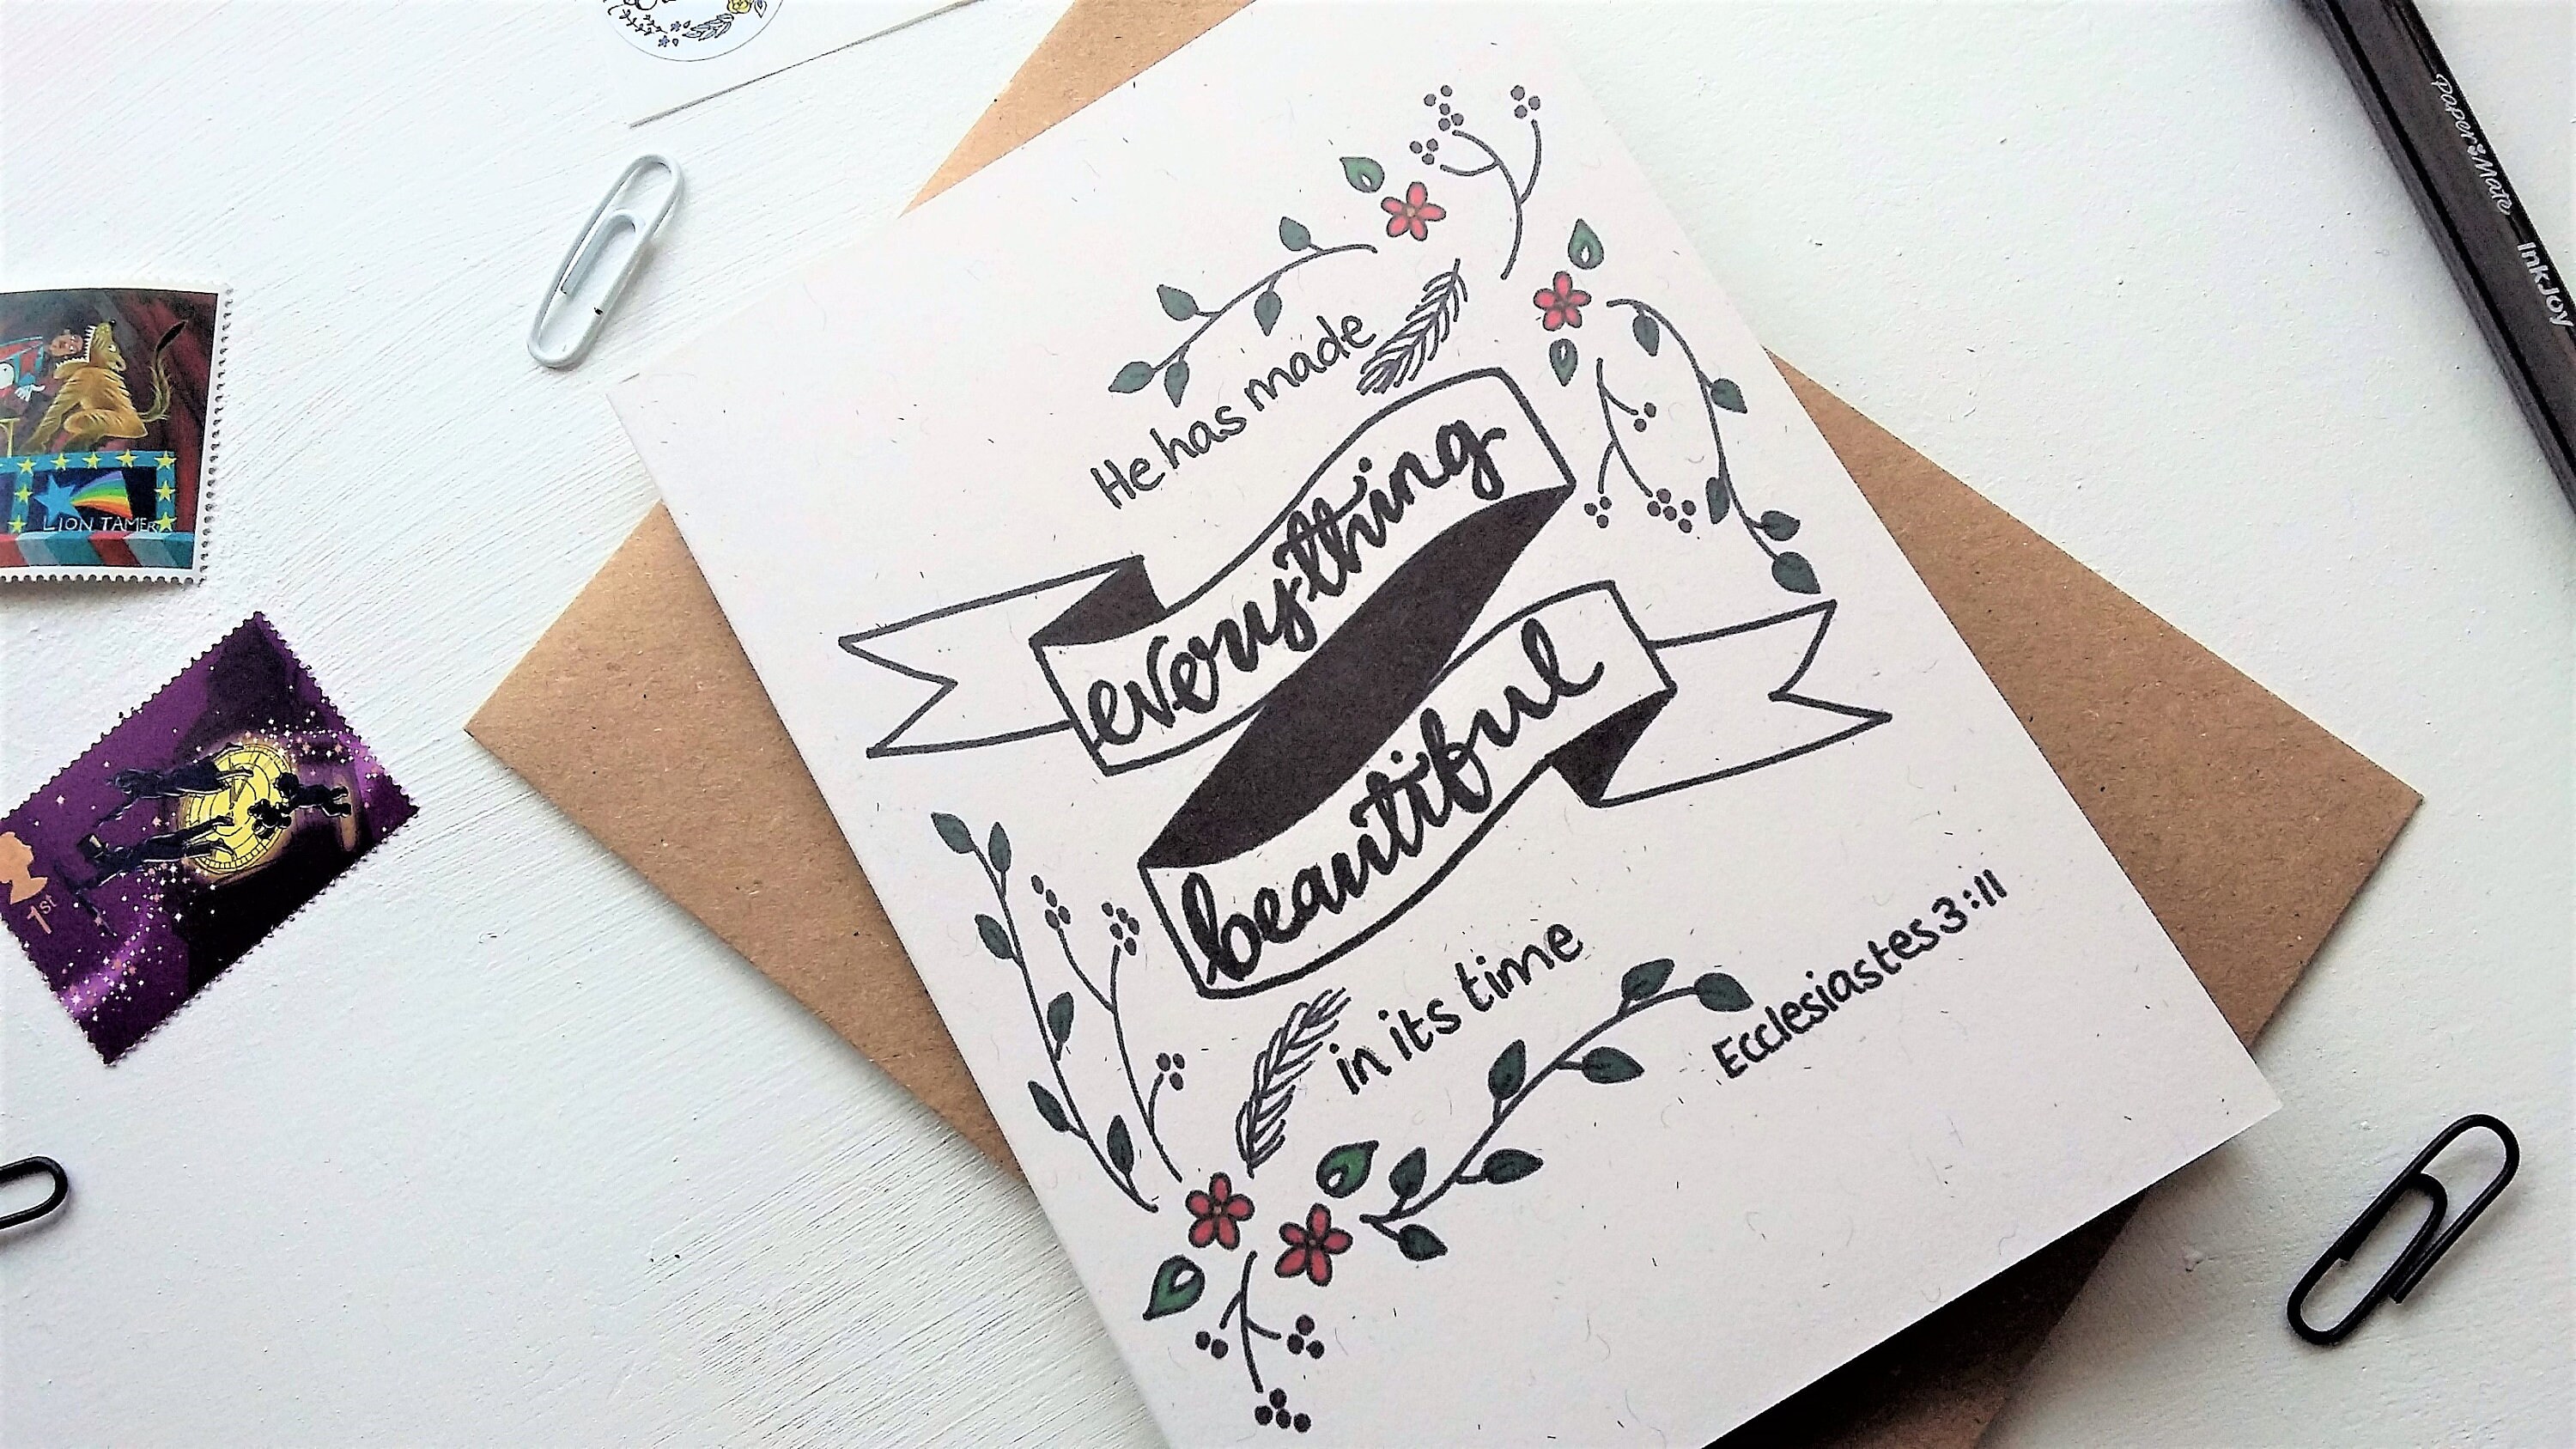 He has made
everything
beautiful
in its time
Ecclesiastes 3:11
LION TAMER
1st
paper:Mate InkJoy